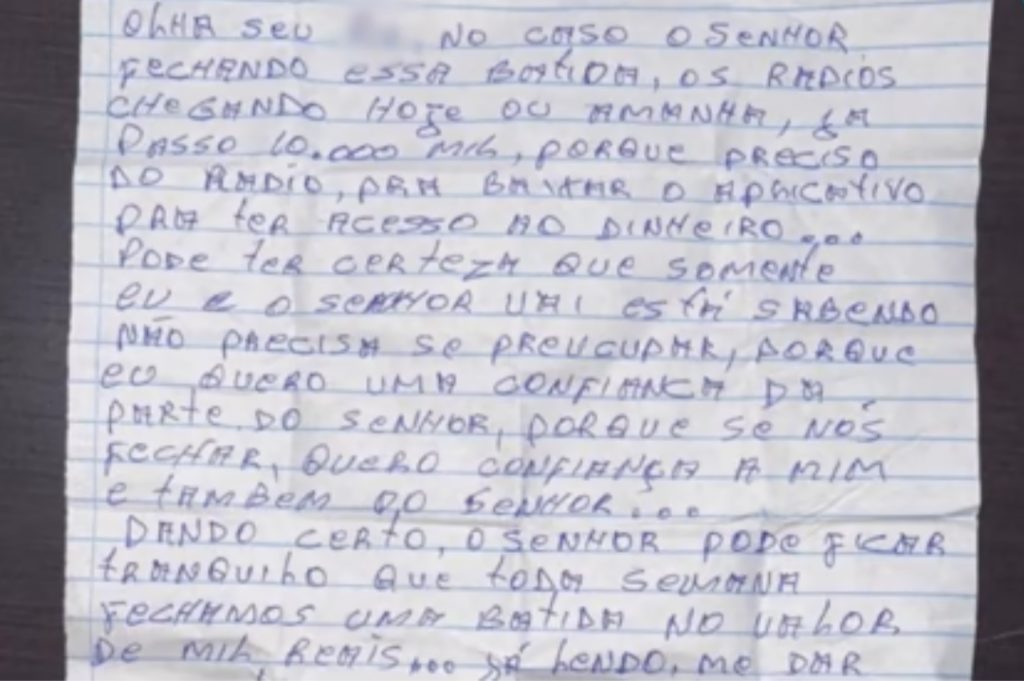 OLHA SEU NO CASO O SENHOR
FECHANDO ESSA BATIDA, OS RADIOS
CHEGANDO HOJE OU AMANHA, JA
PASSO 10.000 MIL, PORQUE PRECISO
DO RADIO, PRA BAIXAR O APLICATIVO
PRA TER ACESSO AO DINHEIRO...
PODE TER CERTEZA QUE SOMENTE
EU E O SENHOR VAI ESTÁ SABENDO
NÃO PRECISA SE PREUCUPAR, PORQUE
EU QUERO UMA CONFIANCA DA
PARTE DO SENHOR, PORQUE SE NÓS
FECHAR, QUERO CONFIANÇA A MIM
E TAMBEM DO SENHOR...
DANDO CERTO, O SENHOR PODE FICAR
TRANQUILO QUE TODA SEMANA
FECHAMOS UMA BATIDA NO VALOR
DE MIL REAIS... JÁ LENDO, ME DAR